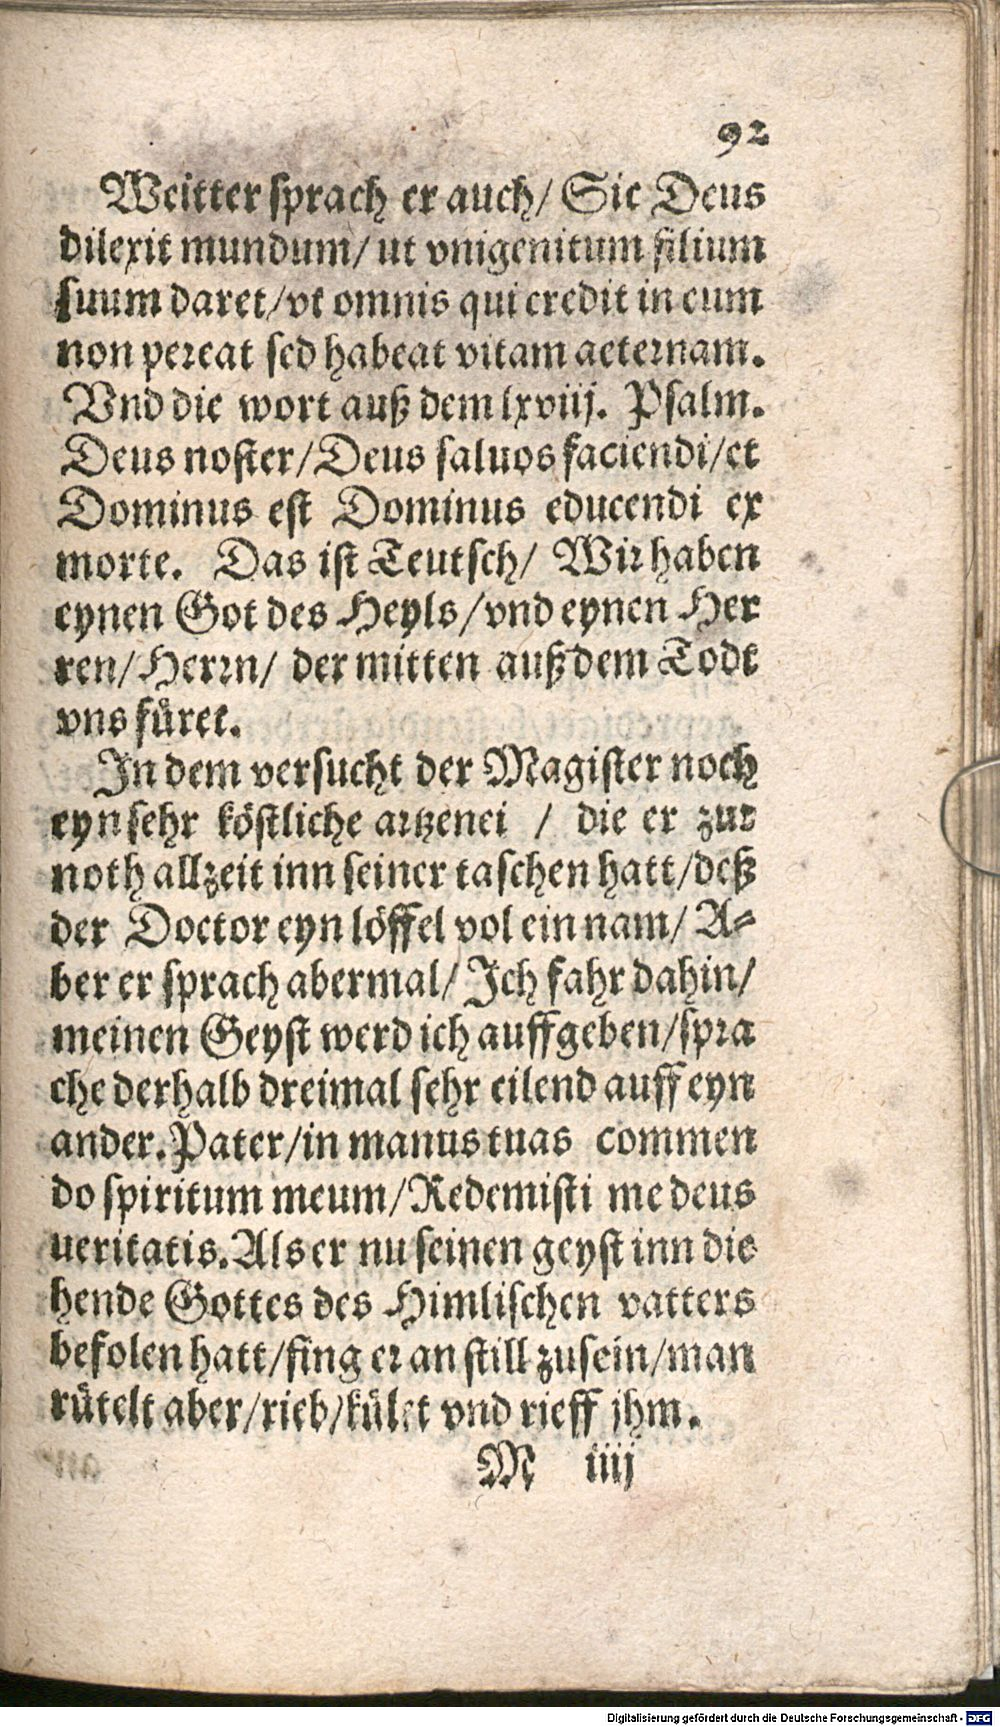 92
Weitter sprach er auch/ Sic Deus
dilexit mundum/ ut vnigenitum filium
suum daret/vt omnis qui credit in eum
non pereat sed habeat vitam aeternam.
Vnd die wort auß dem lxviij. Psalm.
Deus noster/Deus saluos faciendi/et
Dominus est Dominus educendi ex
morte. Das ist Teutsch/ Wir haben
eynen Got des Heyls/vnd eynen Her
ren/Herrn/ der mitten auß dem Todt
vns füret.
In dem versucht der Magister noch
eyn sehr köstliche artzenei / die er zur
noth allzeit inn seiner taschen hatt/deß
der Doctor eyn löffel vol ein nam/ A-
ber er sprach abermal/ Ich fahr dahin/
meinen Geyst werd ich auffgeben/spra
che derhalb dreimal sehr eilend auff eyn
ander. Pater/in manus tuas commen
do spiritum meum/Redemisti me deus
ueritatis. Als er nu seinen geyst inn die
hende Gottes des Himlischen vatters
befolen hatt/fing er an still zusein/man
rütelt aber/rieb/kület vnd rieff jhm.
M iiij
Digitalisierung gefördert durch die Deutsche Forschungsgemeinschaft - DFG